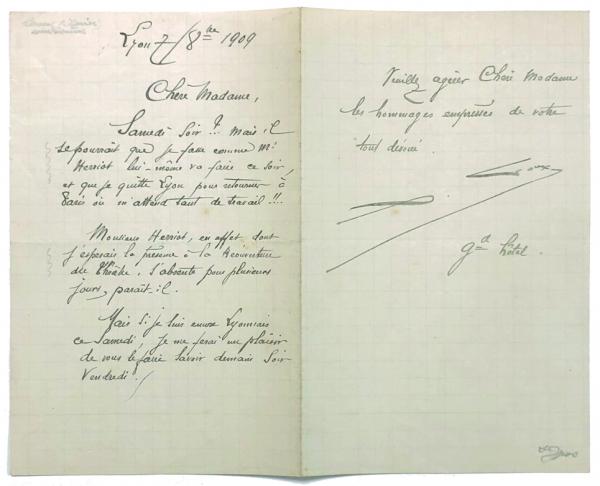 Lyon 7/8bre 1909
Chère Madame,
Samedi Soir !!. Mais il
se pourrait que je fasse comme Mr
Herriot lui-même va faire ce soir,
et que je quitte Lyon pour retourner à
Paris où m'attend tant de travail !!!
Monsieur Herriot, en effet dont
j'espérais la présence à la Réouverture
du Théâtre, s'absente pour plusieurs
jours, parait-il.
Mais si je suis encore Lyonnais
ce Samedi, je me ferai un plaisir
de vous le faire savoir demain Soir
Vendredi !
Veuillez agréer Chère Madame
les hommages empressés de votre
tout dévoué.
gd hôtel.